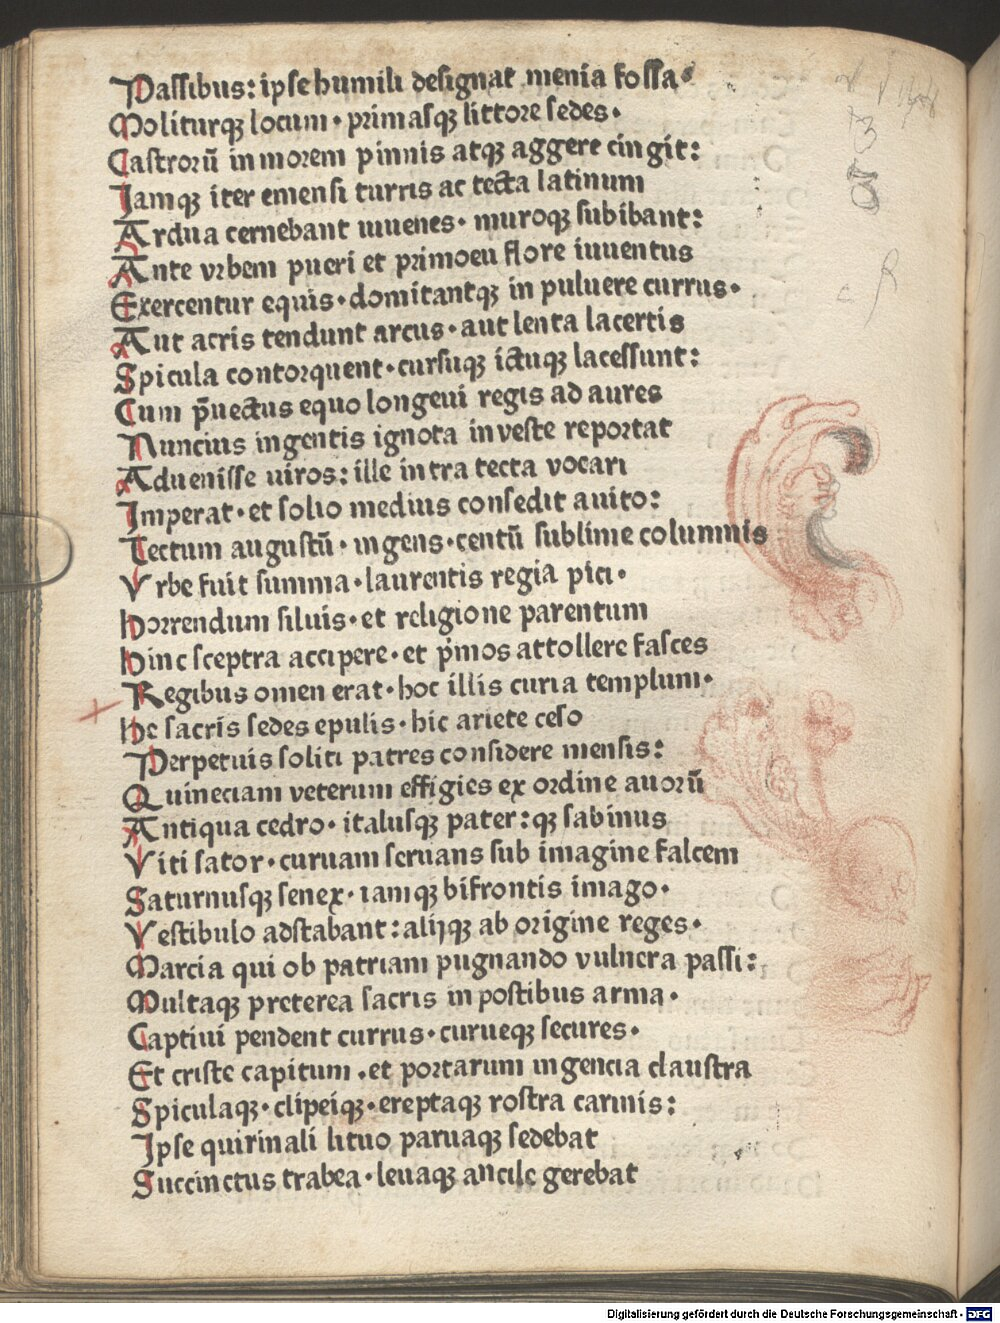 Passibus: ipse humili designat menia fossa·
Moliturqꝫ locum· primasqꝫ littore sedes·
Castrorū in morem pinnis atqꝫ aggere cingit:
Jamqꝫ iter emensi turris ac tecta latinum
Ardua cernebant iuuenes· muroqꝫ subibant:
Ante vrbem pueri et primoeu flore iuuentus
Exercentur equis· domitantqꝫ in puluere currus·
Aut acris tendunt arcus· aut lenta lacertis
Spicula contorquent· cursuqꝫ ictuqꝫ lacessunt:
Cum p̄uectus equo longeui regis ad aures
Nuncius ingentis ignota in veste reportat
Aduenisse uiros: ille intra tecta vocari
Jmperat· et solio medius consedit auito:
Tectum augustū· ingens· centū sublime columnis
Vrbe fuit summa· laurentis regia pici·
horrendum siluis· et religione parentum
hinc sceptra accipere· et p̄mos attollere fasces
Regibus omen erat· hoc illis curia templum·
he sacris sedes epulis· hic ariete ceso
Perpetuis soliti patres considere mensis:
Quineciam veterum effigies ex ordine auorū
Antiqua cedro· italusqꝫ pater: qꝫ sabinus
Viti sator· curuam seruans sub imagine falcem
Saturnusqꝫ senex· iamqꝫ bifrontis imago·
Vestibulo adstabant: alijqꝫ ab origine reges·
Marcia qui ob patriam pugnando vulnera passi:
Multaqꝫ preterea sacris in postibus arma·
Captiui pendent currus· curueqꝫ secures·
Et criste capitum· et portarum ingencia claustra
Spiculaqꝫ· clipeiqꝫ· ereptaqꝫ rostra carinis:
Jpse quirinali lituo paruaqꝫ sedebat
Succinctus trabea· leuaqꝫ ancile gerebat
Digitalisierung gefördert durch die Deutsche Forschungsgemeinschaft - DFG